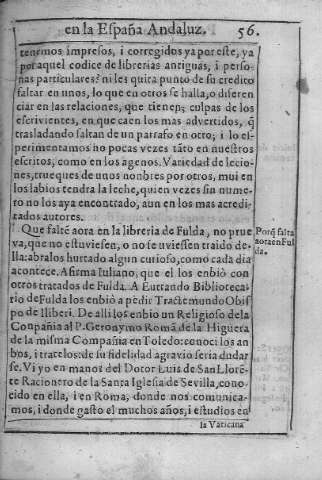 en la España Andaluz. 56.
tenemos impresos, i corregidos ya por este, ya
por aquel codice de librerias antiguas, i perso-
nas particulares? ni les quita punto de su credito
faltar en unos, lo que en otros se halla, o diferen
ciar en las relaciones, que tienen; culpas de los
escrivientes, en que caen los mas advertidos, q̃
trasladando saltan de un parrafo en otro; i lo es-
perimentamos no pocas vezes tãto en nuestros
escritos, como en los agenos. Variedad de lecio-
nes, trueques de unos nonbres por otros, mui en
los labios tendra la leche, quien vezes sin nume-
ro no los aya encontrado, aun en los mas acredi-
tados autores.
Que falte aora en la libreria de Fulda, no prue
va, que no estuviesen, o no se uviessen traido de-
lla: abralos hurtado algun curioso, como cada dia
acontece. Afirma Iuliano, que el los enbiò con
otros tratados de Fulda. A Eutrando Biblioteca-
rio de Fulda los enbiò a pedir Tractemundo Obis
po de Iliberi. De alli los enbio un Religioso de la
Conpañia al P. Geronymo Romã de la Higuera
de la misma Compañia en Toledo: conocilos an
bos, i tratelos: de su fidelidad agravio seria dudar
se. Vi yo en manos del Dotor Luis de San Lloré-
te Racionero de la Santa Iglesia de Sevilla, cono-
cido en ella, i en Roma, donde nos comunica-
mos, i donde gastò el muchos años, i estudios en
la Vaticana
Porq̃ falta
aora en Ful
da.